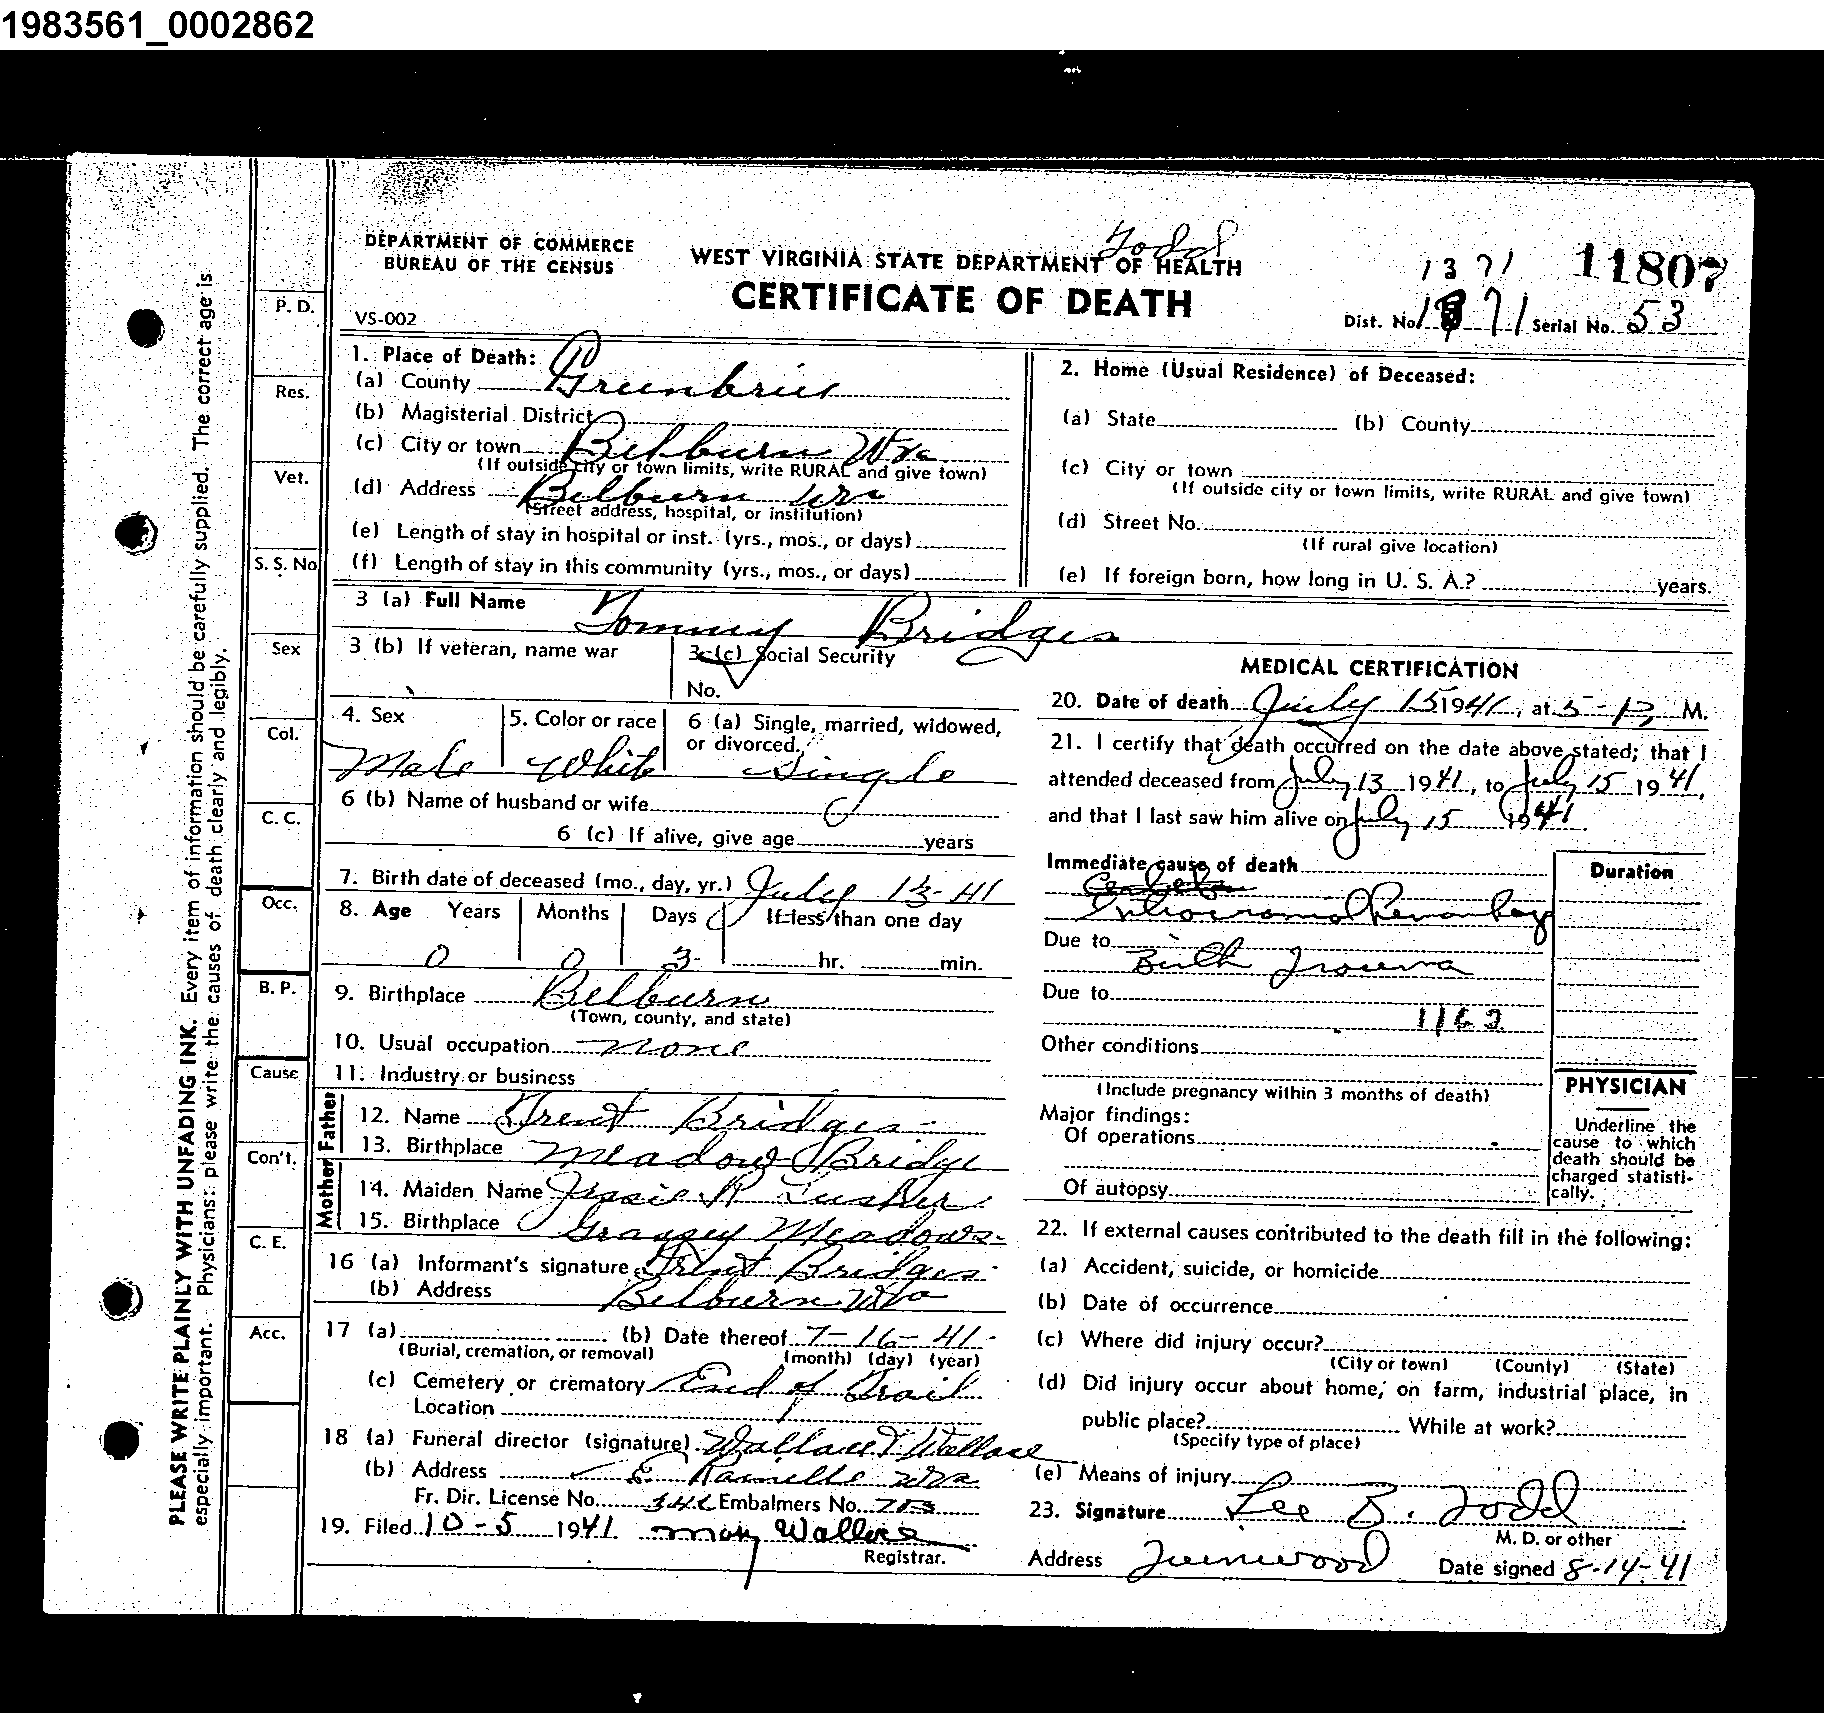 1983561_0002862
Todd
DEPARTMENT OF COMMERCE
BUREAU OF THE CENSUS
WEST VIRGINIA STATE DEPARTMENT OF HEALTH
CERTIFICATE OF DEATH
1371
11807
VS-002
Dist. No. 1371 Serial No. 53
PLEASE WRITE PLAINLY WITH UNFADING INK. Every item of information should be carefully supplied. The correct age is
especially important. Physicians: please write the causes of death clearly and legibly.
P. D.
Res.
Vet.
S. S. No
Sex
Col.
C. C.
Occ.
B. P.
Cause
Con't.
C. E.
Acc.
1. Place of Death:
(a) County Greenbrier
(b) Magisterial District
(c) City or town Belburn Wva
(If outside city or town limits, write RURAL and give town)
(d) Address Belburn Wva
(Street address, hospital, or institution)
(e) Length of stay in hospital or inst. (yrs., mos., or days)
(f) Length of stay in this community (yrs., mos., or days)
2. Home (Usual Residence) of Deceased:
(a) State (b) County
(c) City or town
(If outside city or town limits, write RURAL and give town)
(d) Street No.
(If rural give location)
(e) If foreign born, how long in U. S. A.? years.
3 (a) Full Name Tommy Bridges
3 (b) If veteran, name war
3 (c) Social Security
No.
4. Sex Male
5. Color or race White
6 (a) Single, married, widowed,
or divorced. Single
6 (b) Name of husband or wife
6 (c) If alive, give age years
7. Birth date of deceased (mo., day, yr.) July 13-41
8. Age Years Months Days If less than one day
0 0 3 hr. min.
9. Birthplace Belburn
(Town, county, and state)
10. Usual occupation none
11. Industry or business
Father
12. Name Trent Bridges
13. Birthplace Meadow Bridge
Mother
14. Maiden Name Jessie R Lusher
15. Birthplace Grassey Meadows
16 (a) Informant's signature Trent Bridges
(b) Address Belburn Wva
17 (a) (b) Date thereof 7-16-41
(Burial, cremation, or removal) (month) (day) (year)
(c) Cemetery or crematory End of Trail
Location
18 (a) Funeral director (signature) Wallace & Wallace
(b) Address E. Rainelle Wva
Fr. Dir. License No. Embalmers No.
19. Filed 10-5 1941 Mary Wallace
Registrar.
MEDICAL CERTIFICATION
20. Date of death July 15 1941, at 5-P, M.
21. I certify that death occurred on the date above stated; that I
attended deceased from July 13 1941, to July 15 1941,
and that I last saw him alive on July 15 1941.
Immediate cause of death
Intracranial Hemorrhage
Due to
Birth Trauma
Due to
Other conditions
(Include pregnancy within 3 months of death)
Major findings:
Of operations
Of autopsy
Duration
PHYSICIAN
Underline the
cause to which
death should be
charged statisti-
cally.
22. If external causes contributed to the death fill in the following:
(a) Accident, suicide, or homicide
(b) Date of occurrence
(c) Where did injury occur?
(City or town) (County) (State)
(d) Did injury occur about home, on farm, industrial place, in
public place? While at work?
(Specify type of place)
(e) Means of injury
23. Signature Lee B. Todd
M. D. or other
Address Quinwood Date signed 8-14-41